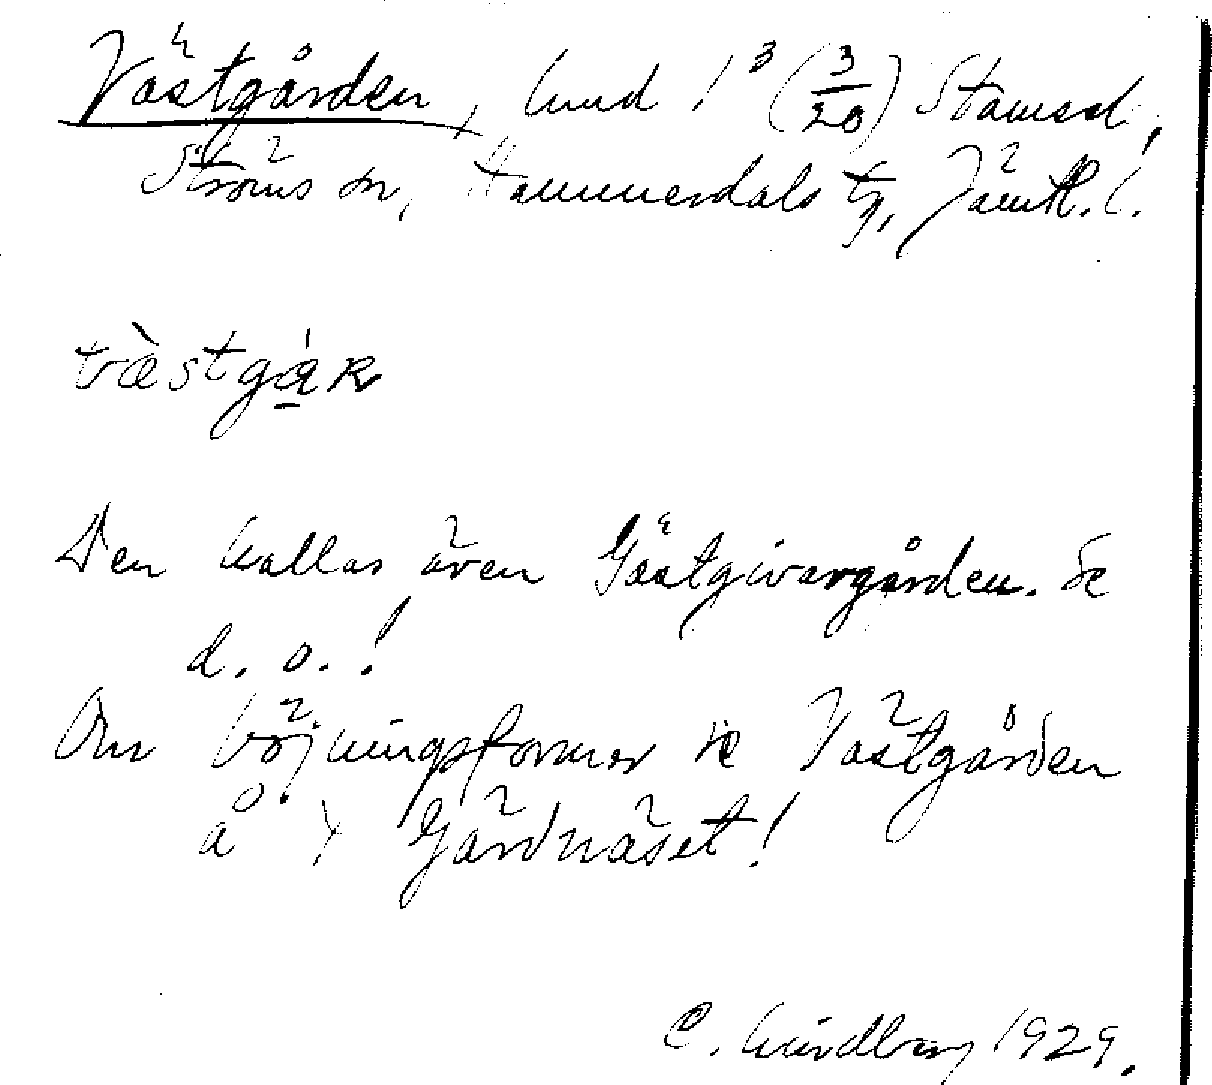 Västgården, hmd 1³ (3/20) Stamsel,
Ströms sn, Hammerdals tg, Jämtl. l.
væ̀stgá̱ꞃ
Den kallas även Gästgivargården. Se
d. o.!
Om böjningsformer se Västgården
å Gärdnäset!
C. Lindberg 1929.